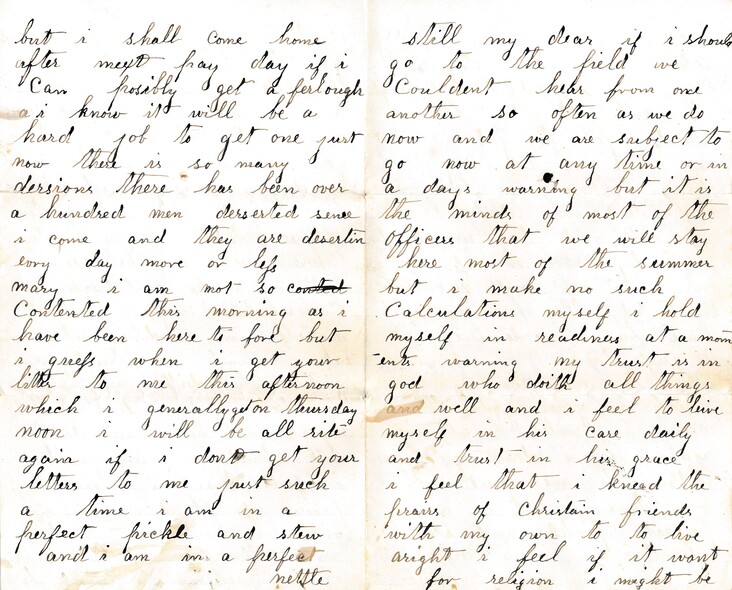 but i shall come home
after next pay day if i
Can posibly get a ferlough
a i know it will be a
hard job to get one just
now there is so many
dersions there has been over
a hundred men derserted sence
i come and they are desertin
evry day more or less
mary i am not so
Contented this morning as i
have been here to fore but
i guess when i get your
litter to me this afternoon
which i generally get on thursday
noon i will be all rite
again if i dont get your
letters to me just such
a time i am in a
perfect pickle and stew
and i am in a perfect
nettle
still my dear if i should
go to the field we
Couldent hear from one
another so often as we do
now and we are subject to
go now at any time or in
a days warning but it is
the minds of most of the
officers that we will stay
here most of the summer
but i make no such
Calculations myself i hold
myself in readiness at a mom
ents warning my trust is in
god who doith all things
and well and i feel to leive
myself in his care daily
and trust in his grace
i feel that i knead the
prairs of Christain friends
with my own to to live
aright i feel if it want
for religion i might be